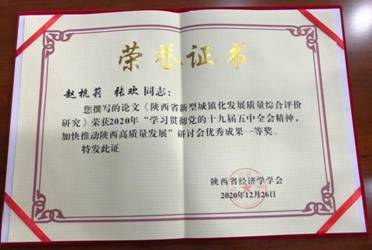 荣誉证书
赵桄莉 张欢 同志：
您撰写的论文《陕西省新型城镇化发展质量综合评价
研究》荣获2020年“学习贯彻党的十九届五中全会精神，
加快推动陕西高质量发展”研讨会优秀成果一等奖。
特发此证
陕西省经济学学会
2020年12月26日